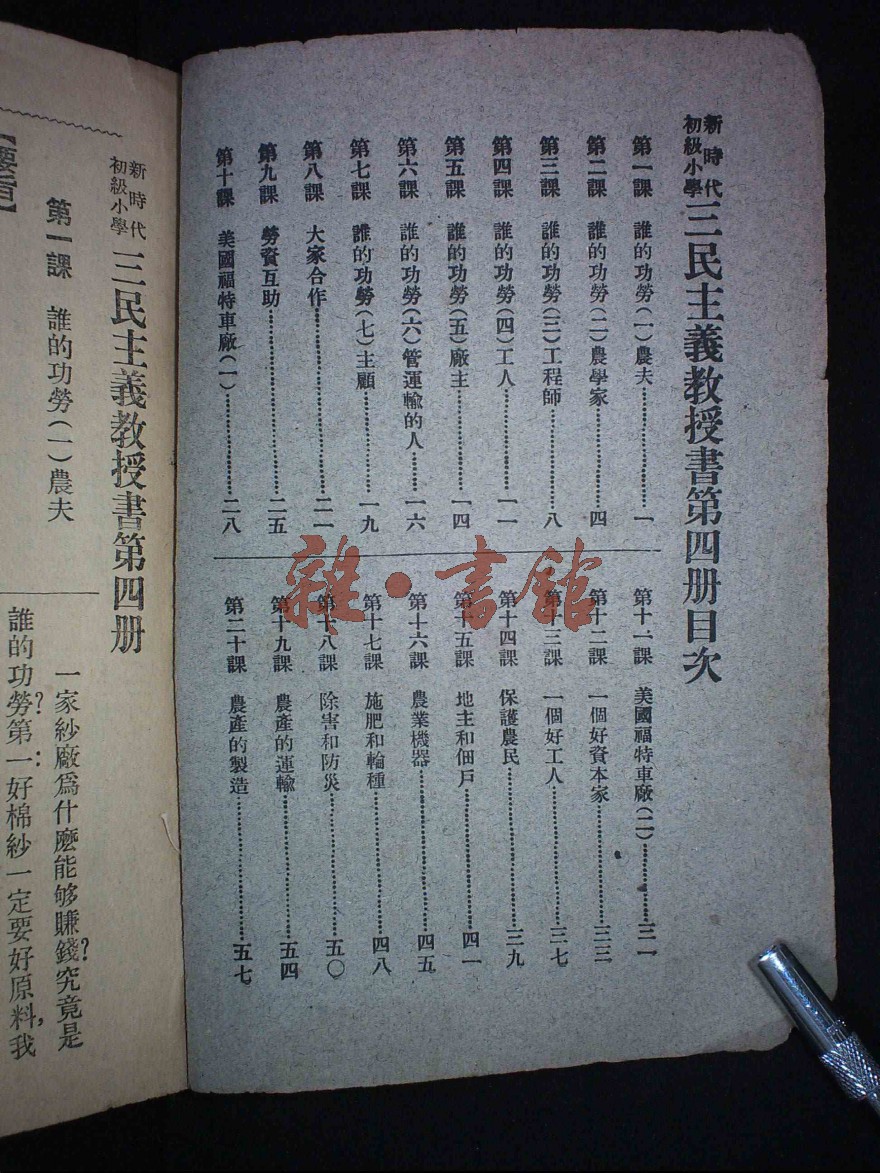 新時代
初級小學
三民主義教授書第四册目次
第一課 誰的功勞(一)農夫……一
第二課 誰的功勞(二)農學家……四
第三課 誰的功勞(三)工程師……八
第四課 誰的功勞(四)工人……一一
第五課 誰的功勞(五)廠主……一四
第六課 誰的功勞(六)管運輸的人……一六
第七課 誰的功勞(七)主顧……一九
第八課 大家合作……二一
第九課 勞資互助……二五
第十課 美國福特車廠(一)……二八
第十一課 美國福特車廠(二)……三一
第十二課 一個好資本家……三三
第十三課 一個好工人……三七
第十四課 保護農民……三九
第十五課 地主和佃戶……四一
第十六課 農業機器……四五
第十七課 施肥和輪種……四八
第十八課 除害和防災……五〇
第十九課 農產的運輸……五四
第二十課 農產的製造……五七
雜·書館
新時代
初級小學
三民主義教授書第四册
第一課 誰的功勞(一)農夫
一家紗廠爲什麽能够賺錢?究竟是
誰的功勞?第一:好棉紗一定要好原料,我